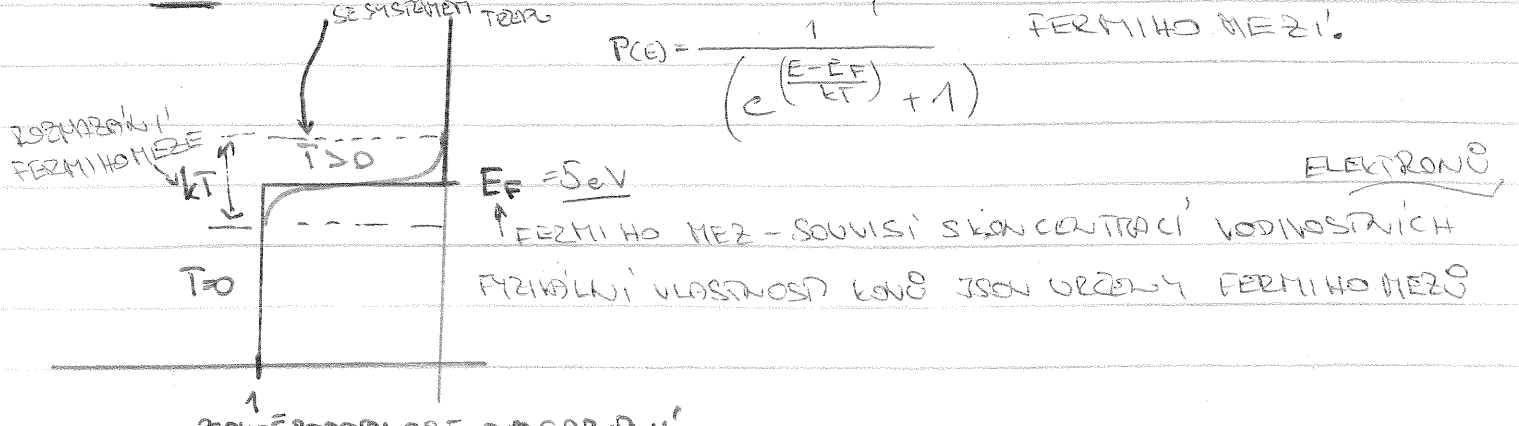 SE SYSTEMEM TZOR
P(E) = 1 / (e^((E-EF)/kT) + 1)
FERMIHO MEZÍ.
ROZMAZÁNÍ
FERMIHO MEZE
kT
T>0
EF = 5eV
ELEKTRONŮ
FERMIHO MEZ - SOUVISÍ S KONCENTRACÍ VODIVOSTNÍCH
T=0
FYZIKÁLNÍ VLASTNOSTI KOVŮ JSOU URČENY FERMIHO MEZŮ
1